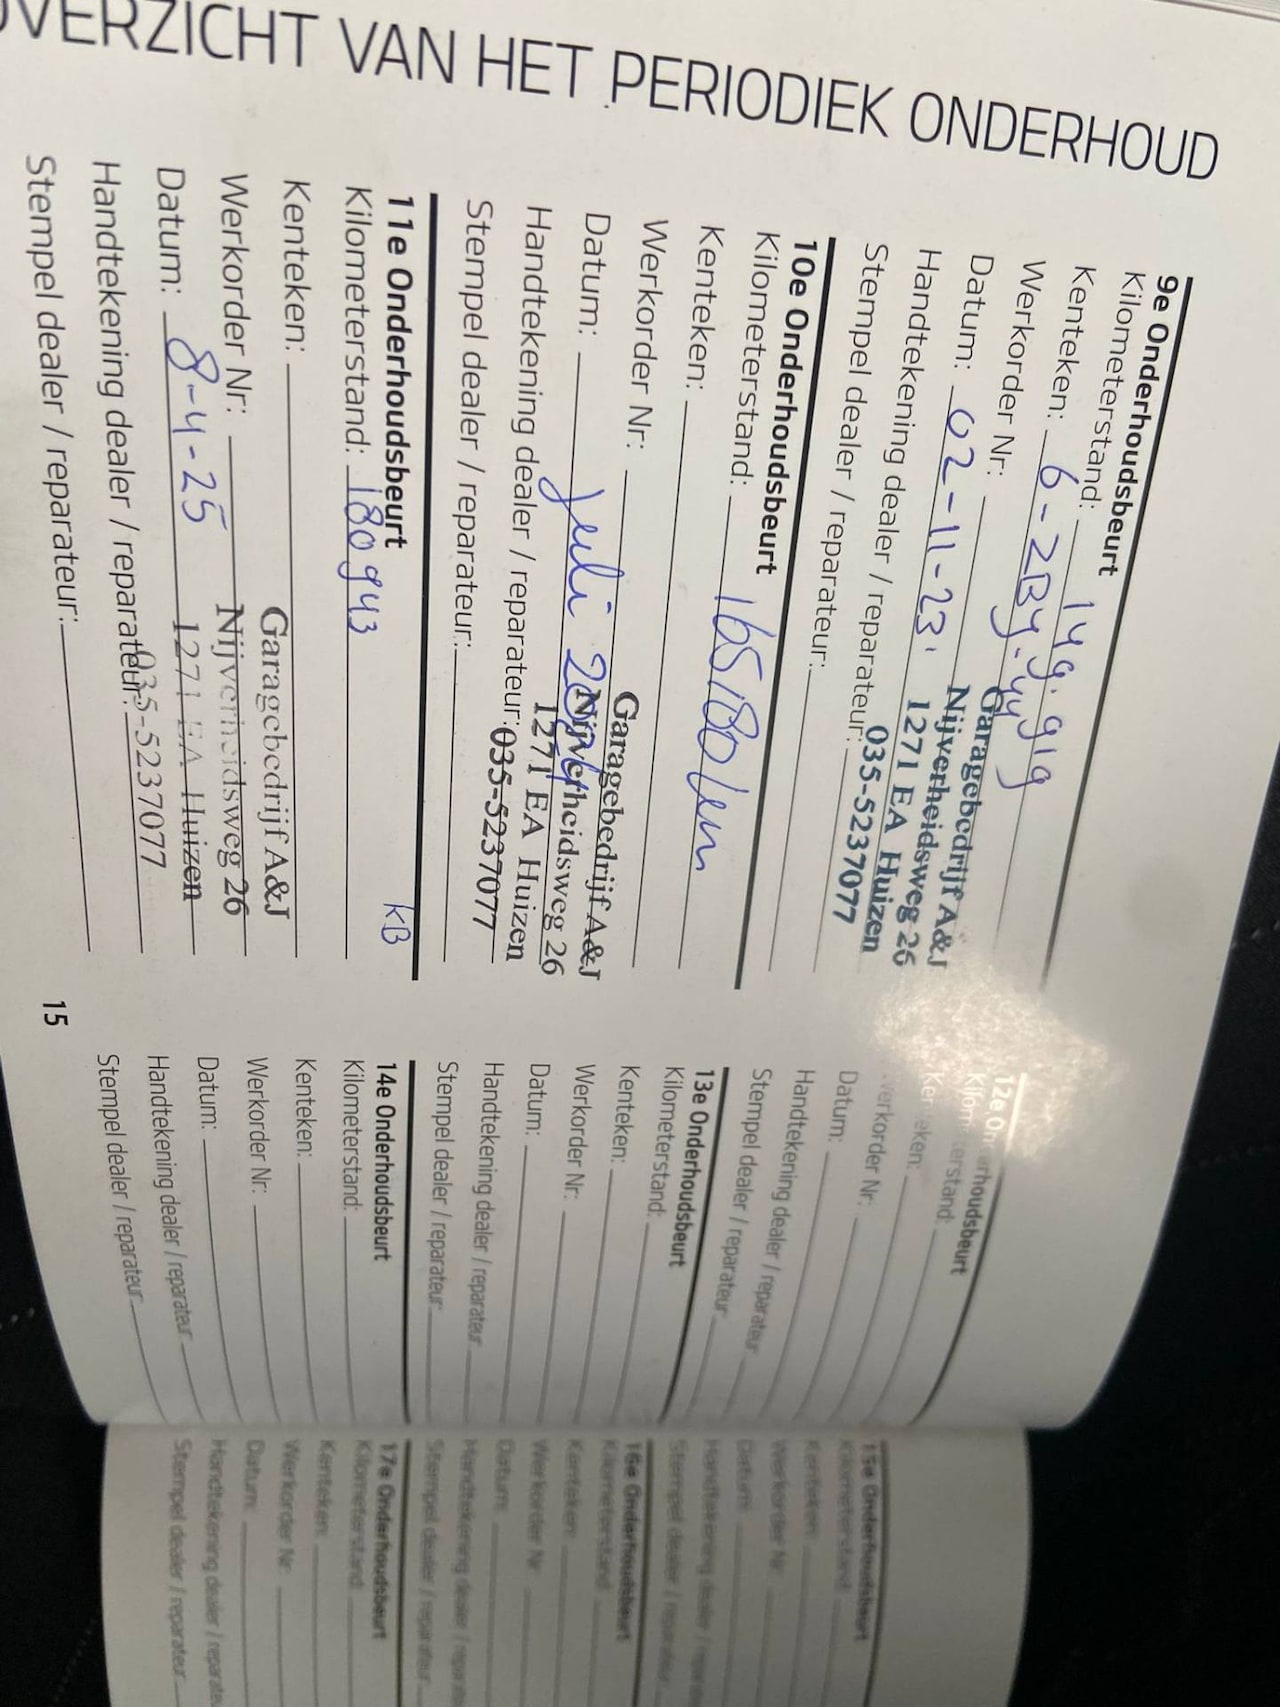 OVERZICHT VAN HET PERIODIEK ONDERHOUD
9e Onderhoudsbeurt
Kilometerstand: 149.919
Kenteken: 6-ZBy-44
Werkorder Nr:
Datum: 02-11-23
Handtekening dealer / reparateur:
Stempel dealer / reparateur:
Garagebedrijf A&J
Nijverheidsweg 26
1271 EA Huizen
035-5237077
10e Onderhoudsbeurt
Kilometerstand: 165180 km
Kenteken:
Werkorder Nr:
Datum: juli 2024
Handtekening dealer / reparateur:
Stempel dealer / reparateur:
Garagebedrijf A&J
Nijverheidsweg 26
1271 EA Huizen
035-5237077
11e Onderhoudsbeurt
KB
Kilometerstand: 180943
Kenteken:
Werkorder Nr:
Datum: 8-4-25
Handtekening dealer / reparateur:
Stempel dealer / reparateur:
Garagebedrijf A&J
Nijverheidsweg 26
1271 EA Huizen
035-5237077
15
12e Onderhoudsbeurt
Kilometerstand:
Kenteken:
Werkorder Nr:
Datum:
Handtekening dealer / reparateur:
Stempel dealer / reparateur:
13e Onderhoudsbeurt
Kilometerstand:
Kenteken:
Werkorder Nr:
Datum:
Handtekening dealer / reparateur:
Stempel dealer / reparateur:
14e Onderhoudsbeurt
Kilometerstand:
Kenteken:
Werkorder Nr:
Datum:
Handtekening dealer / reparateur:
Stempel dealer / reparateur:
15e Onderhoudsbeurt
Kilometerstand:
Kenteken:
Werkorder Nr:
Datum:
Handtekening dealer / repara
Stempel dealer / reparateur:
16e Onderhoudsbeurt
Kilometerstand:
Kenteken:
Werkorder Nr:
Datum:
Handtekening dealer / repara
Stempel dealer / reparateur:
17e Onderhoudsbeurt
Kilometerstand:
Kenteken:
Werkorder Nr:
Datum:
Handtekening dealer / reparateu
Stempel dealer / reparateur: